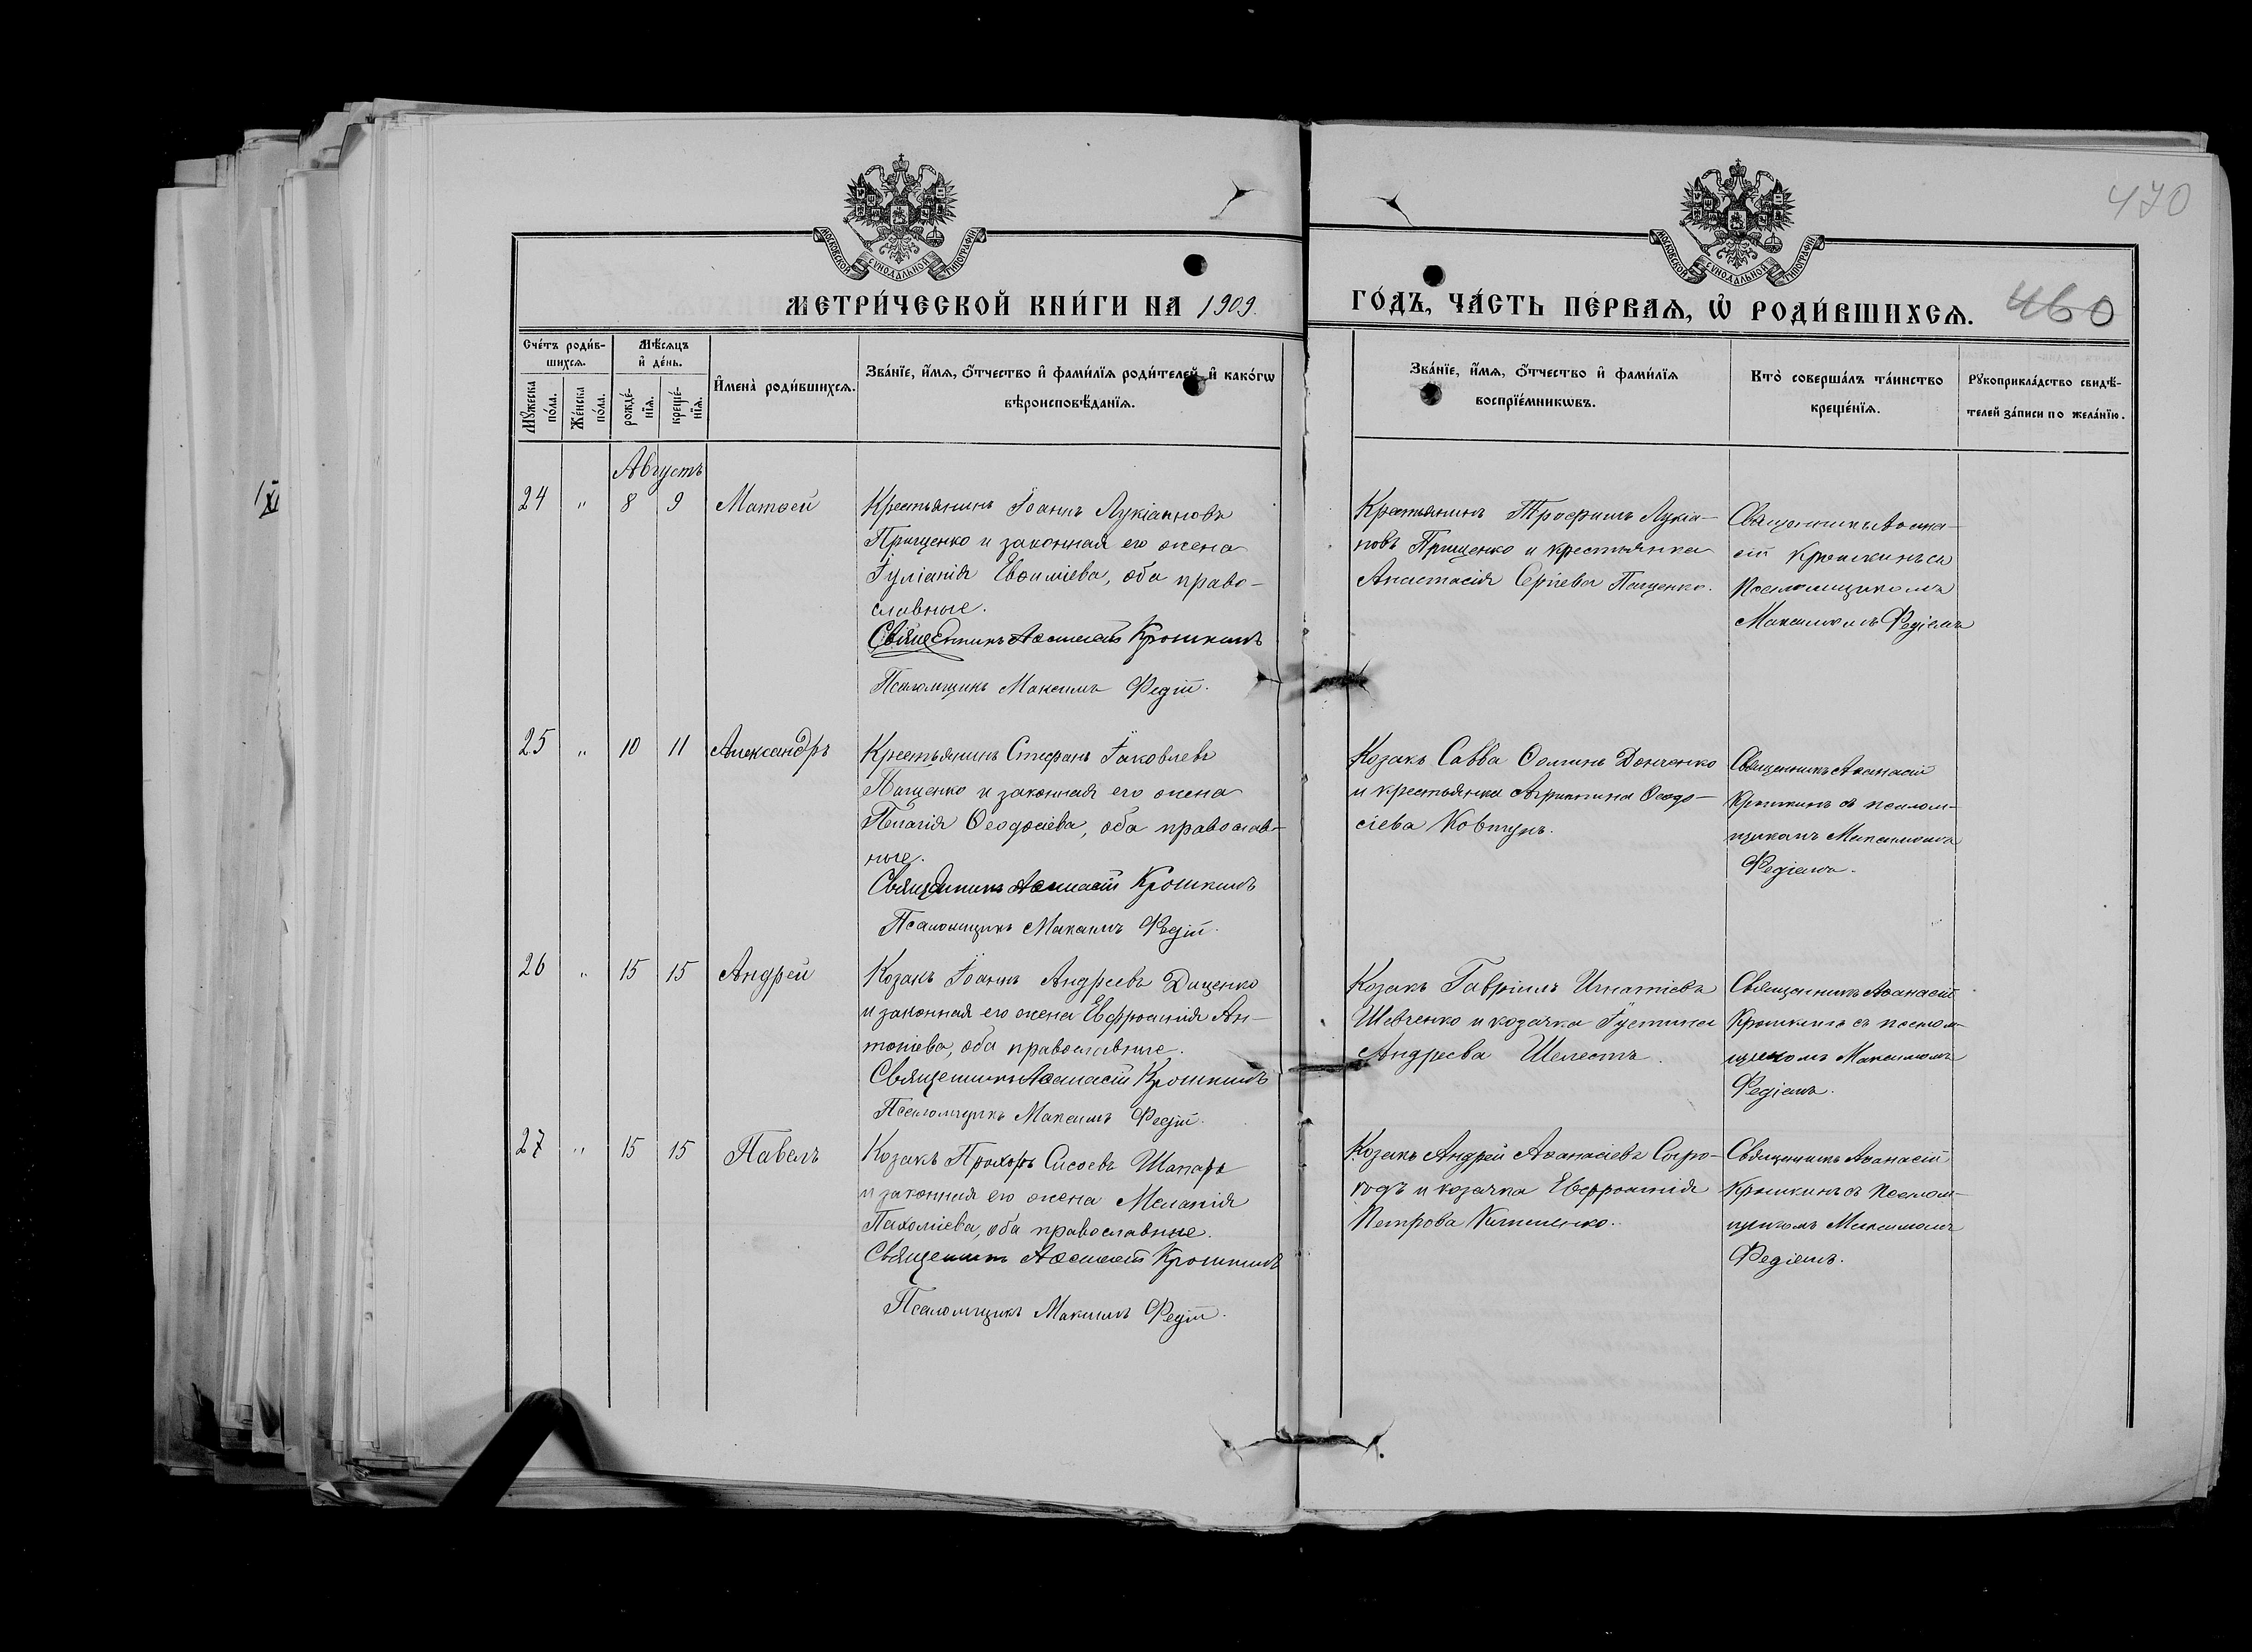 470
МОСКОВСКОЙ СѴНОДАЛЬНОЙ ТИПОГРАФІИ
МОСКОВСКОЙ СѴНОДАЛЬНОЙ ТИПОГРАФІИ
МЕТРИ́ЧЕСКОЙ КНИ́ГИ НА 1909.
ГО́ДЪ, ЧА́СТЬ ПЕ́РВАѦ, Ѽ РОДИ́ВШИХСѦ.
460
Сче́тъ роди́в-
шихсѧ.
Мꙋ́жеска
по́ла.
Же́нска
по́ла.
Мѣ́сѧцъ
и҆ де́нь.
рожде́-
нїѧ.
креще́-
нїѧ.
И҆мена̀ роди́вшихсѧ.
Зва́нїе, и҆́мѧ, ѻ҆́тчество и҆ фами́лїѧ роди́телей, и҆ како́гѡ
вѣроисповѣ́данїѧ.
Зва́нїе, и҆́мѧ, ѻ҆́тчество и҆ фами́лїѧ
воспрїе́мникѡвъ.
Кто̀ соверша́лъ та́инство
креще́нїѧ.
Рꙋкоприкла́дство свидѣ́-
телей за́писи по жела́нїю.
Августъ
24 " 8 9 Матѳей
Крестьянинъ Іоаннъ Лукіанновъ
Прищенко и законная его жена
Іуліанія Евѳиміева, оба право-
славные.
Священникъ Аѳанасій Крошкинъ
Псаломщикъ Максимъ Федій.
Крестьянинъ Трофимъ Лукіа-
новъ Прищенко и крестьянка
Анастасія Сергіева Пащенко.
Священникъ Аѳана-
сій Крошкинъ съ
Псаломщикомъ
Максимомъ Федіемъ
25 " 10 11 Александръ
Крестьянинъ Стефанъ Іаковлевъ
Пащенко и законная его жена
Пелагія Ѳеодосіева, оба православ-
ные.
Священникъ Аѳанасій Крошкинъ
Псаломщикъ Максимъ Федій.
Козакъ Савва Ѳоминъ Донченко
и крестьянка Агриппина Ѳеодо-
сіева Ковтунъ.
Священникъ Аѳанасій
Крошкинъ съ псалом-
щикомъ Максимомъ
Федіемъ.
26 " 15 15 Андрей
Козакъ Іоаннъ Андреевъ Даценко
и законная его жена Евфросинія Ан-
тоніева, оба православные.
Священникъ Аѳанасій Крошкинъ
Псаломщикъ Максимъ Федій.
Козакъ Гавріилъ Игнатіевъ
Шевченко и козачка Іустина
Андреева Шелестъ.
Священникъ Аѳанасій
Крошкинъ съ псалом-
щикомъ Максимомъ
Федіемъ.
27 " 15 15 Павелъ
Козакъ Прохоръ Сисоевъ Шапаръ
и законная его жена Меланія
Пахоміева, оба православные.
Священникъ Аѳанасій Крошкинъ
Псаломщикъ Максимъ Федій.
Козакъ Андрей Аѳанасіевъ Сыро-
и козачка Евфросинія
Петрова
Священникъ Аѳанасій
Крошкинъ съ Псалом-
щикомъ Максимомъ
Федіемъ.